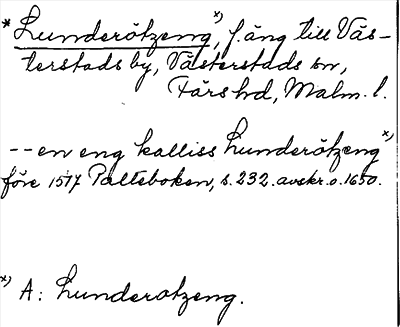 * Lunderötzeng x), f. äng till Väs-
terstads by, Västerstads sn,
Färs hd, Malm. l.
-- en eng kalliss Lunderötzeng x)
före 1517 Palteboken, s. 232. avskr. o. 1650.
x) A: Lunderotzeng.